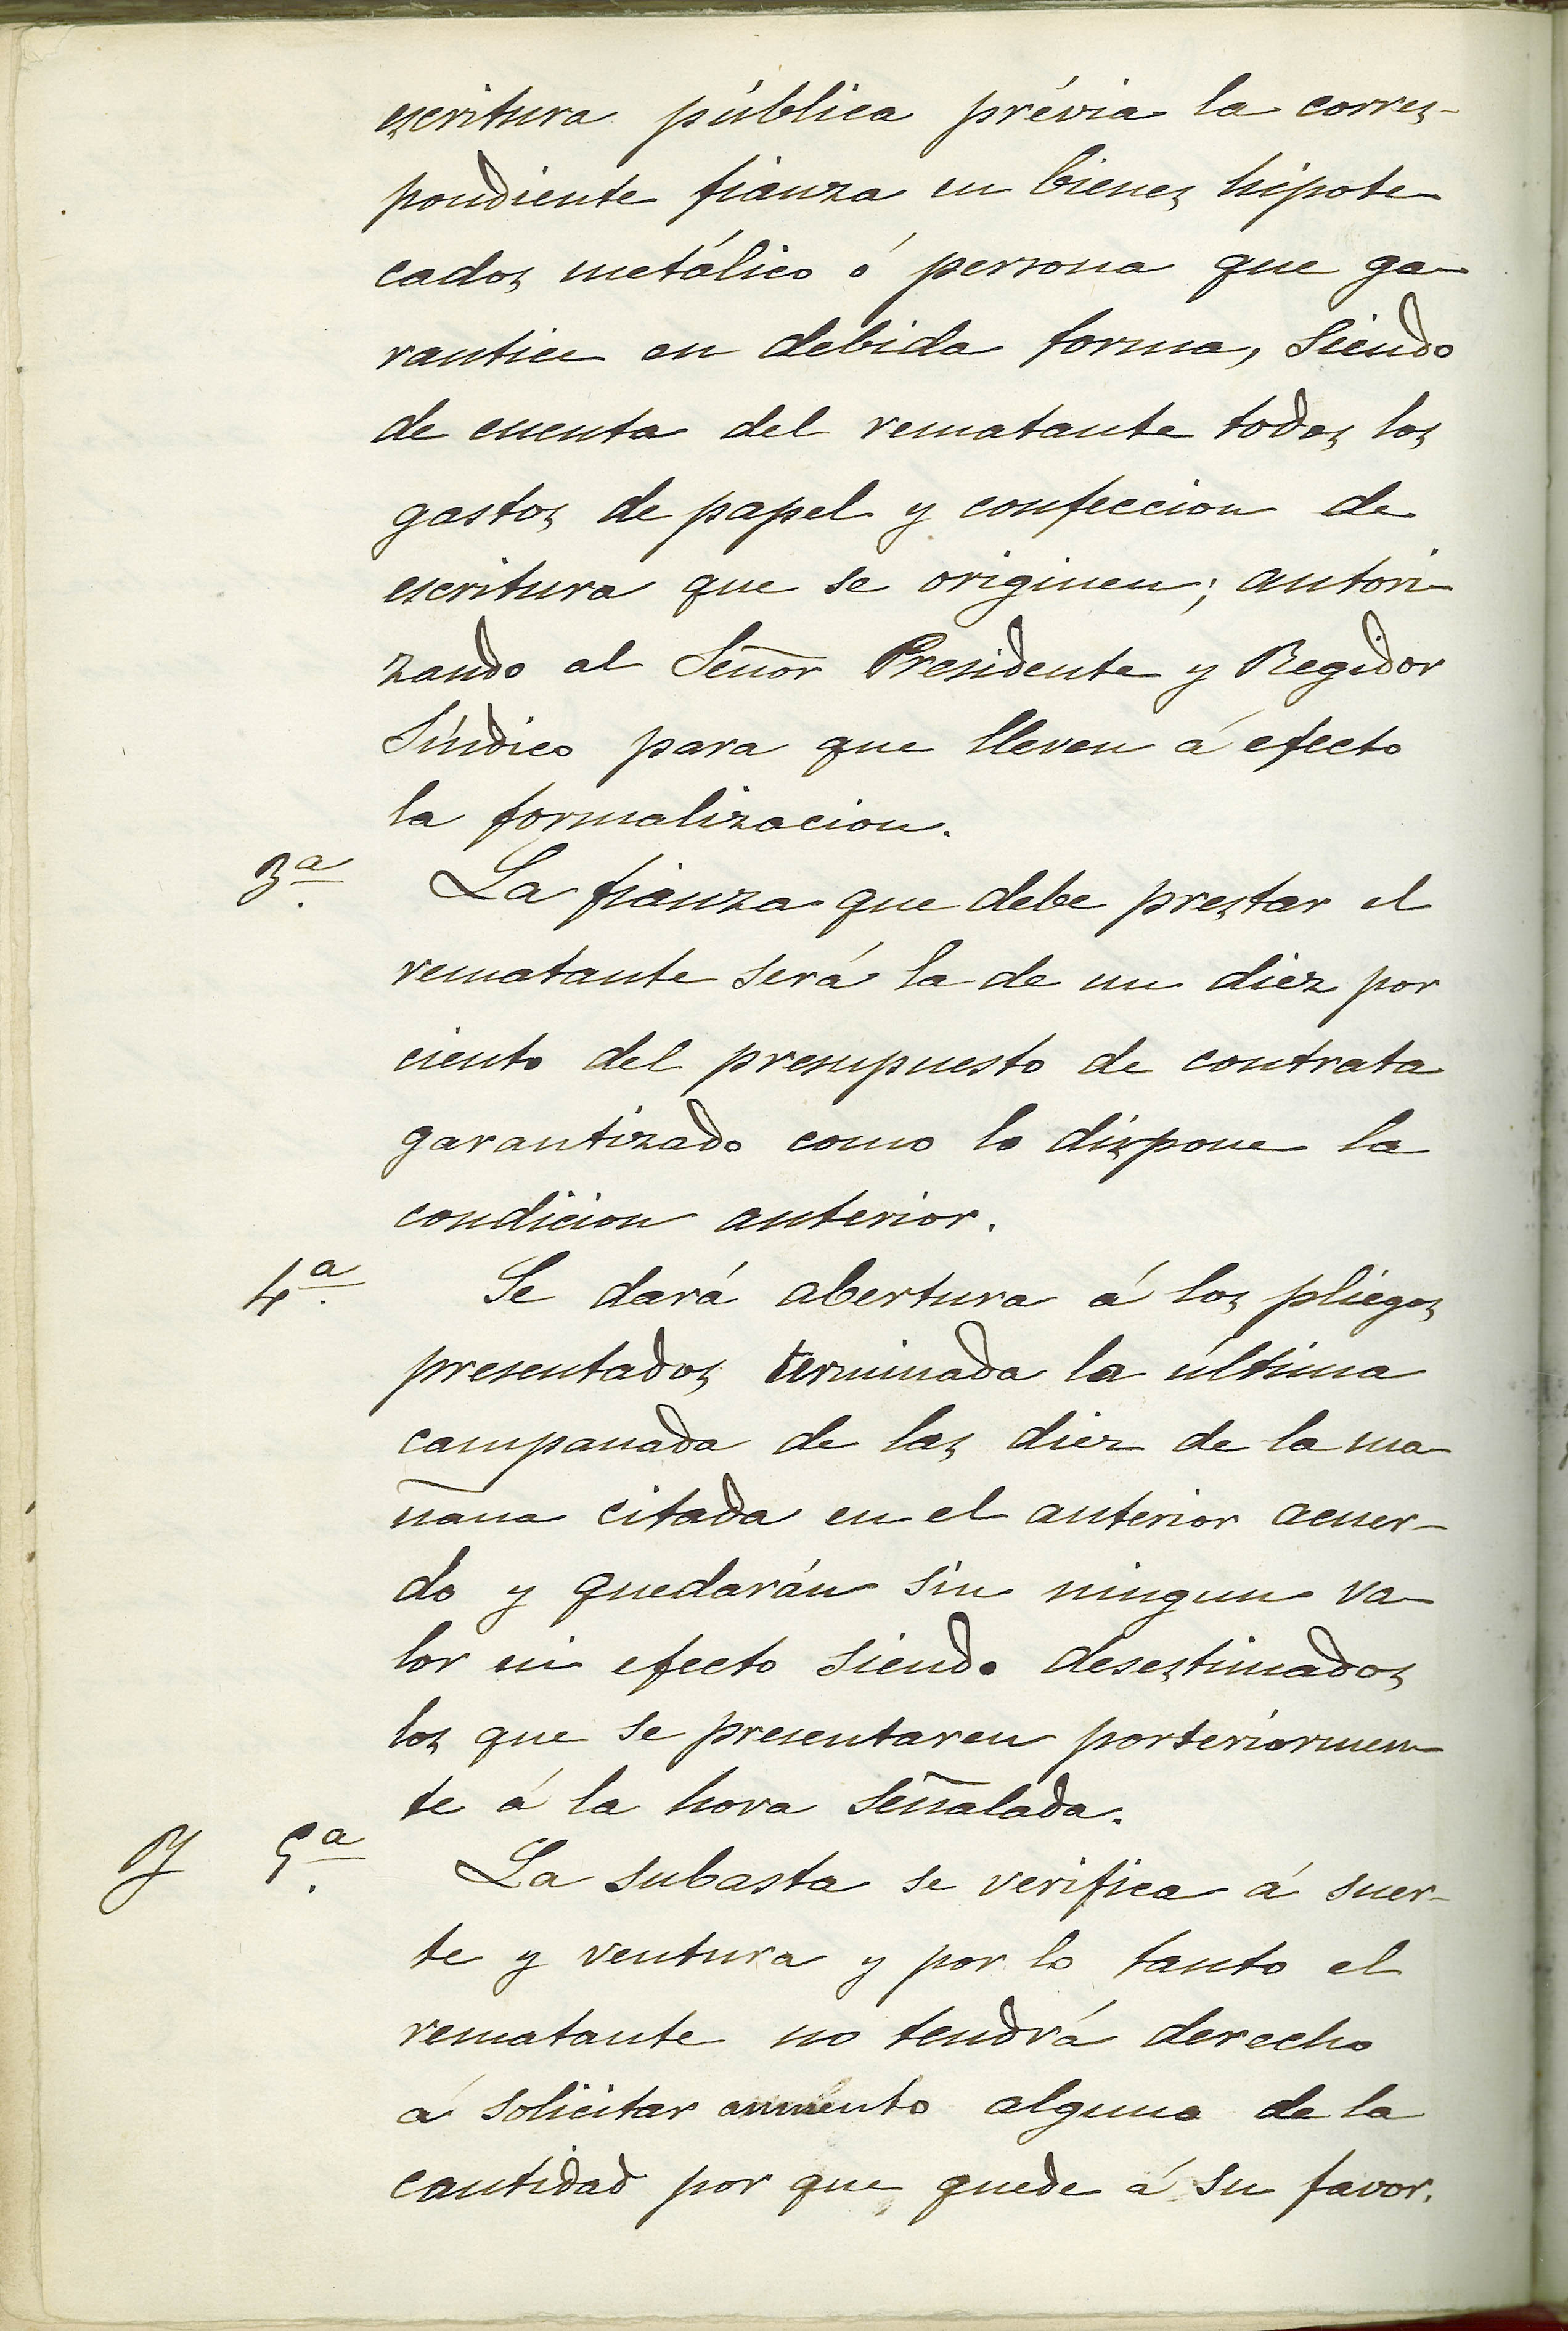 escritura pública prévia la corres-
pondiente fianza en bienes hipote
cados metálico ó persona que ga-
rantice en debida forma, siendo
de cuenta del rematante todos los
gastos de papel y confeccion de
escritura que se originen; autori-
zando al Señor Presidente y Regidor
Síndico para que lleven á efecto
la formalizacion.
3ª La fianza que debe prestar el
rematante será la de un diez por
ciento del presupuesto de contrata
garantizado como lo dispone la
condicion anterior.
4ª Se dará abertura á los pliegos
presentados terminada la última
campanada de las diez de la ma-
ñana citada en el anterior acuer-
do y quedarán sin ningun va-
lor ni efecto siendo desestimados
los que se presentaren posteriormen-
te á la hora señalada.
Y 5ª La subasta se verifica á suer-
te y ventura y por lo tanto el
rematante no tendrá derecho
á solicitar aumento alguno de la
cantidad por que quede á su favor.